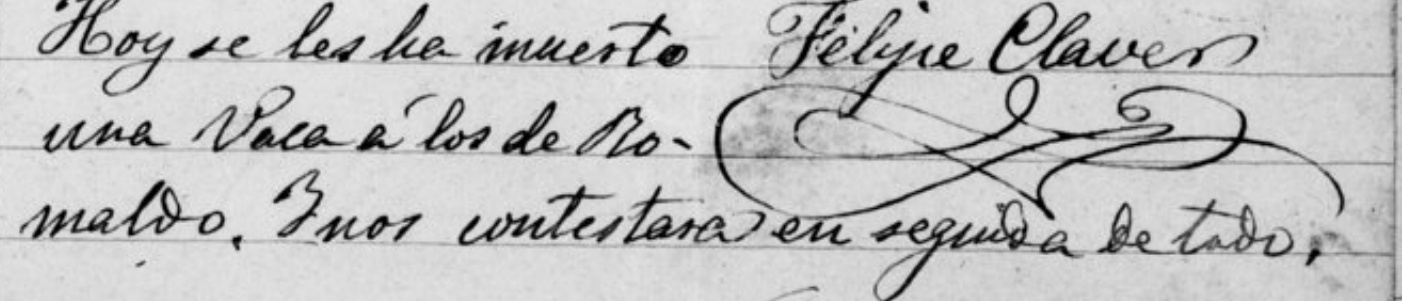 Hoy se les ha muerto Felipe Claver
una Vaca á los de Ro-
maldo. Y nos contestara en seguida de todo.